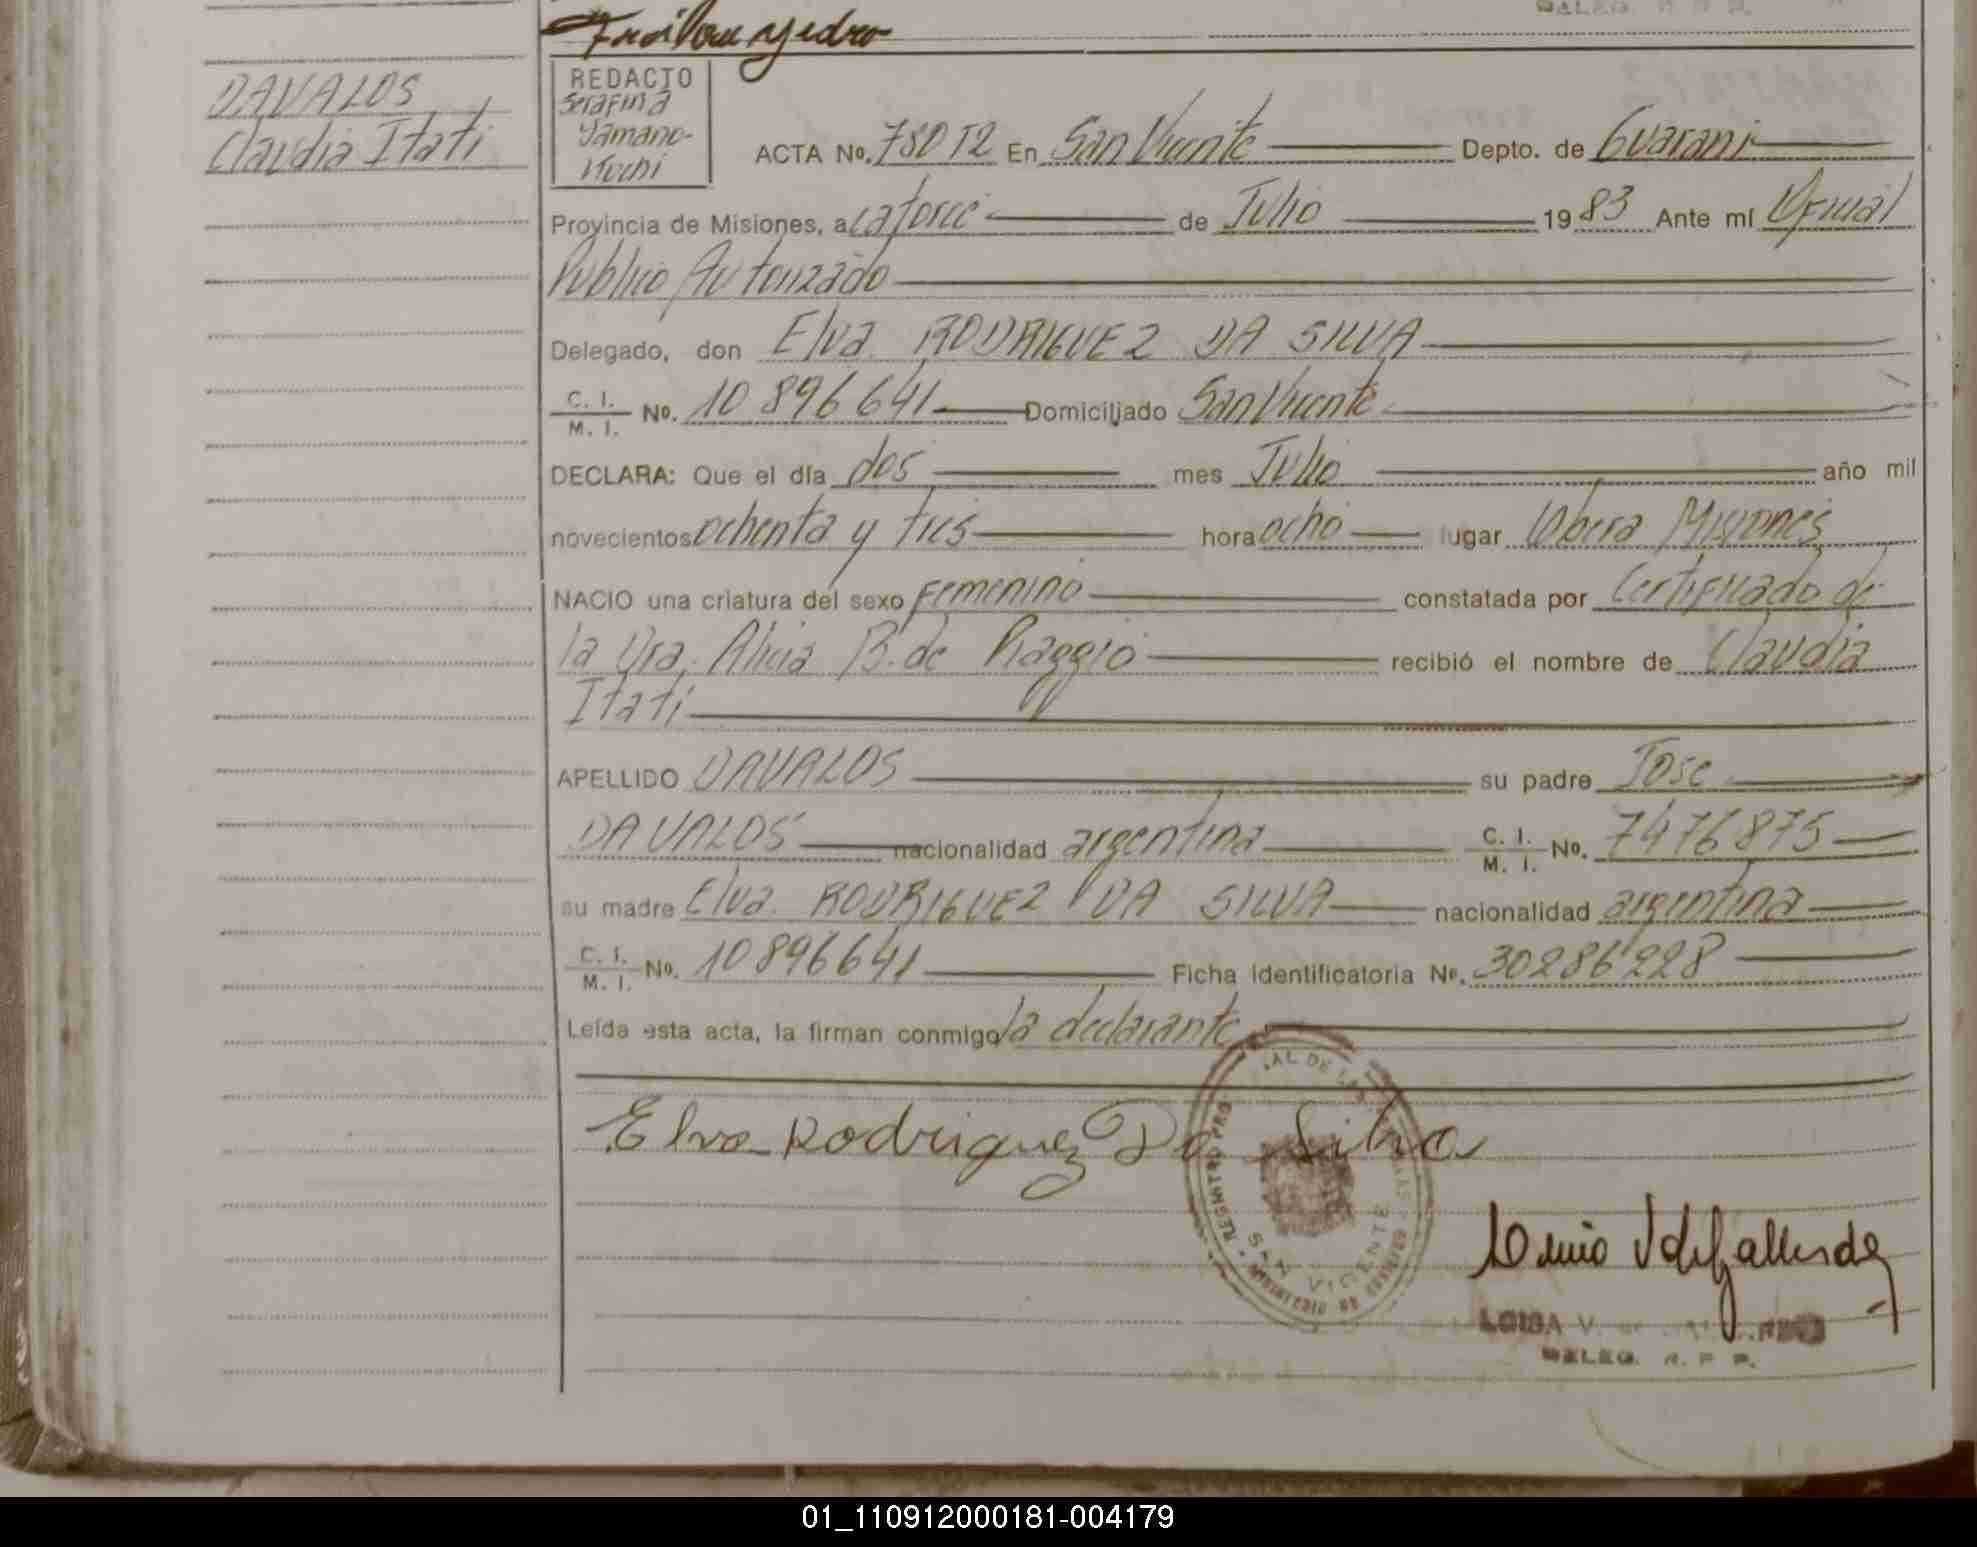 DALEG. R. P. P.
DAVALOS
Claudia Itati
REDACTO
Serafina
Yamano-
Kochi
ACTA No. 780 T2 En San Vicente Depto. de Guarani
Provincia de Misiones, a catorce de Julio 1983 Ante mí Oficial
Publico Autorizado
Delegado, don Elva RODRIGUEZ DA SILVA
C. I. M. I. No. 10 896 641 Domiciliado San Vicente
DECLARA: Que el día dos mes Julio año mil
novecientos ochenta y tres hora ocho lugar Obera Misiones
NACIO una criatura del sexo femenino constatada por Certificado de
la Dra. Alicia B. de Raggio recibió el nombre de Claudia
Itati
APELLIDO DAVALOS su padre Jose
DAVALOS nacionalidad argentina C. I. M. I. No. 7476875
su madre Elva RODRIGUEZ DA SILVA nacionalidad argentina
C. I. M. I. No. 10896641 Ficha identificatoria No. 30286228
Leída esta acta, la firman conmigo la declarante
Elva Rodriguez Da Silva
SAN VICENTE
LOISA V.
DELEG. R. P. P.
01_110912000181-004179